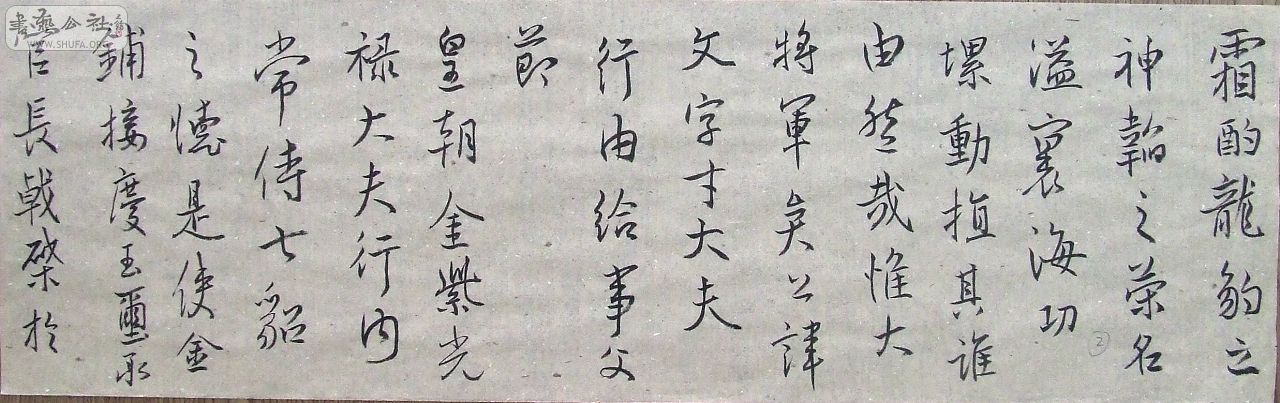 霜酌龍豹之
神韜之榮名
溢寰海功
動植其誰
由然哉惟大
將軍矣公諱
文字才大夫
行由給事父
節
皇朝金紫光
禄大夫行内
常侍七貂
之憓是使金
鋪接慶玉璽承
官長戟磔於
②
書藝公社
WWW.SHUFA.ORG